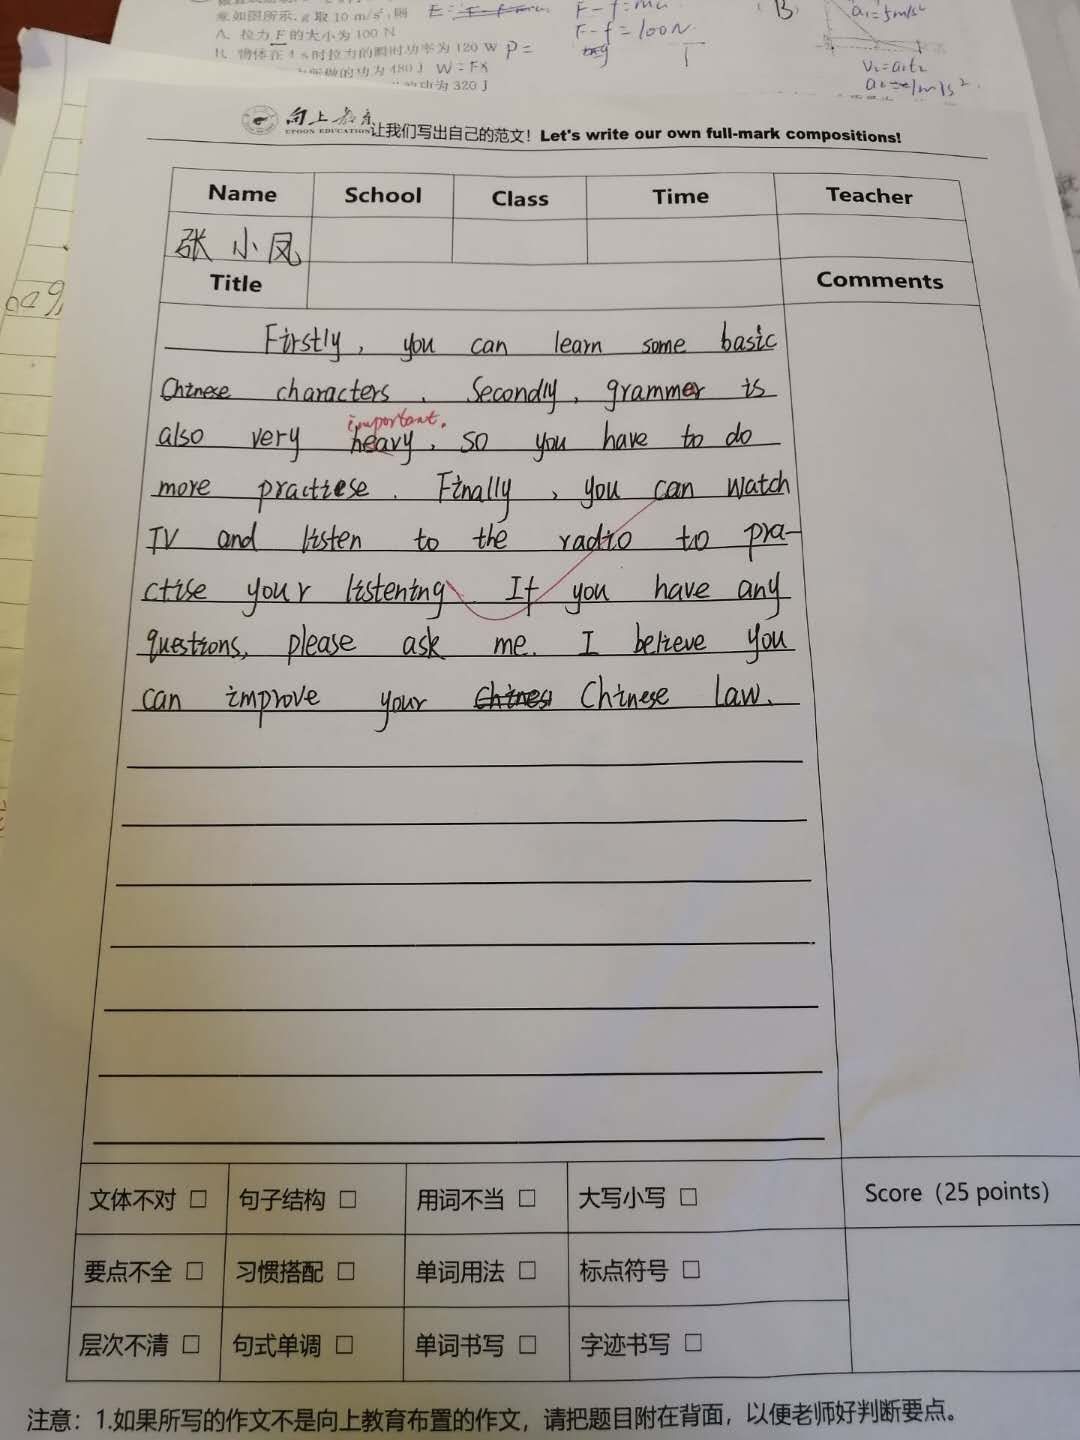 意如图所示,g取10 m/s²,则
A. 拉力F的大小为100 N
F-f=100N
B. 物体在4 s时拉力的瞬时功率为120 W P=
所做的功为480 J W=FX
功为320 J
B
a₁=5m/s²
V₂=a₂t₂
向上教育
UPOON EDUCATION
让我们写出自己的范文! Let's write our own full-mark compositions!
Name School Class Time Teacher
张小凤
Title Comments
Firstly, you can learn some basic
Chinese characters. Secondly, grammer is
important.
also very heavy, so you have to do
more practiese. Finally, you can watch
TV and listen to the radio to pra-
ctise your listening. If you have any
questions, please ask me. I believe you
can improve your Chines Chinese law.
文体不对 □ 句子结构 □ 用词不当 □ 大写小写 □ Score (25 points)
要点不全 □ 习惯搭配 □ 单词用法 □ 标点符号 □
层次不清 □ 句式单调 □ 单词书写 □ 字迹书写 □
注意: 1.如果所写的作文不是向上教育布置的作文,请把题目附在背面,以便老师好判断要点。